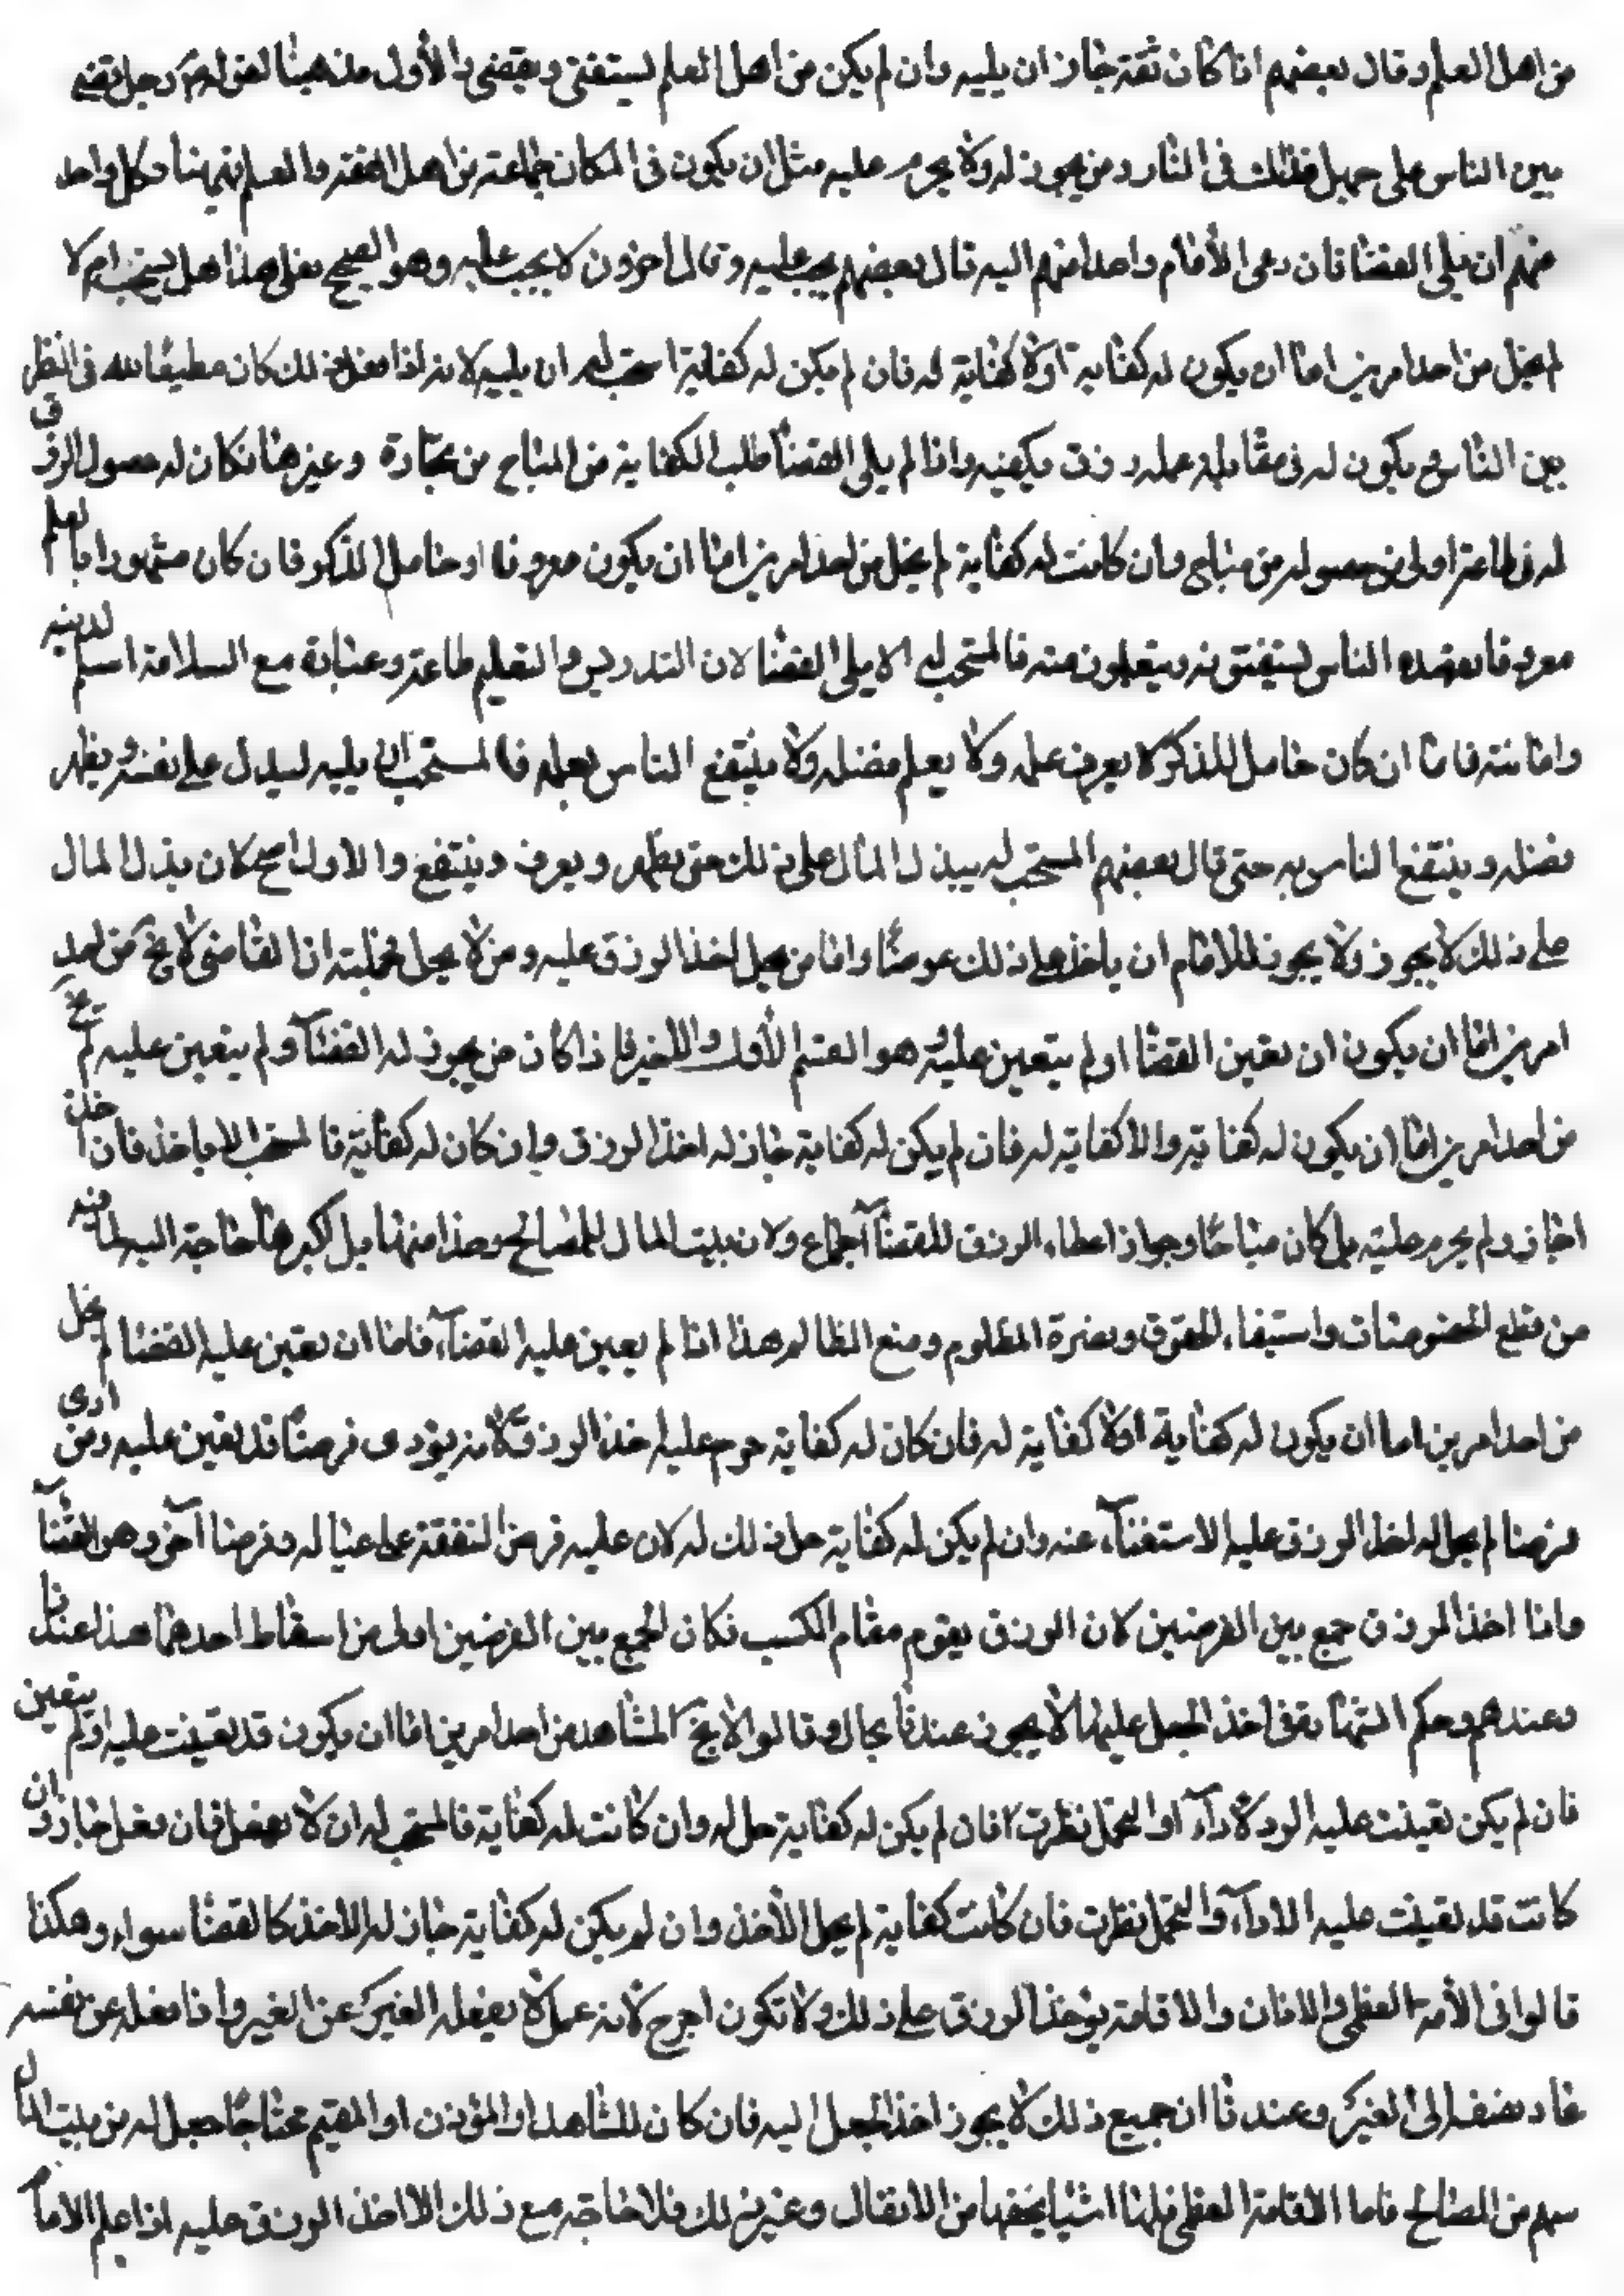 من اهل العلم وقال بعضهم اذا كان ثقة جاز ان يليه وان لم يكن من اهل العلم ليستفتى ويقضى والأول مذهبنا لقوله ورجل قضى
بين الناس على جهل فذلك فى النار ومن يجوز له ولا يحرم عليه مثل ان يكون فى المكان جماعة من اهل الفقه والعلم وكل واحد
منهم ان يلى القضا فان دعى الأمام واحدا منهم اليه قال بعضهم يجب عليه وقال اخرون لا يجب عليه وهو الصحيح فعلى هذا هل يستحب ام لا
لم يخل من احد امرين اما ان يكون له كفاية او لا كفاية له فان لم يكن له كفاية استحب له ان يليه لانه اذا فعل ذلك كان مطيعا لله فى النظر
بين الناس ويكون له فى مقابلة عمله رزق يكفيه واذا لم يلى القضا طلب الكفاية من المباح من تجارة وغيرها فكان له حصول الرزق
له فى طاعة اولى من حصوله من مباح وان كانت له كفاية لم يخل من احد امرين اما ان يكون معروفا او خامل الذكر فان كان مشهورا بالعلم
معروفا يقصده الناس ليستفتونه ويتعلمون منه فالمستحب له الا يلى القضا لان التدريس والتعليم طاعة وعبادة مع السلامة اسلم لدينه
وامانته فاما ان كان خامل الذكر لا يعرف علمه ولا يعلم فضله ولا ينتفع الناس بعلمه فالمستحب ان يليه ليدل على نفسه ويظهر
فضله وينتفع الناس به حتى قال بعضهم المستحب له يبذل المال على ذلك حتى يظهر ويعرف وينتفع والاول اصح كان بذل المال
على ذلك لا يجوز ولا يجوز للامام ان ياخذ على ذلك عوضا واما من يحل اخذ الرزق عليه ومن لا يحل فجملته اذا القاضى لا يخ من احد
امرين اما ان يكون ان تعين القضا او لم يتعين عليه وهو القسم الأول والاخير فاذا كان من يجوز له القضآ ولم يتعين عليه لم يخ
من احد امرين اما ان يكون له كفاية والا كفاية له فان لم يكن له كفاية جاز له اخذ الرزق وان كان له كفاية فالمستحب الا ياخذ فان اخذ
جاز ولم يحرم عليه بل كان مباحا وجواز اعطاء الرزق للقضآ اجماع ولان بيت المال للمصالح وهذا منها بل اكبرها حاجة اليه لما فيه
من قطع الخصومات واستيفاء الحقوق ونصرة المظلوم ومنع الظالم هذا اذا لم يعين عليه القضاء فاما ان تعين عليه القضا لم يخل
من احد امرين اما ان يكون له كفاية او لا كفاية له فان كان له كفاية حرم عليه اخذ الرزق لانه يؤدى فرضا قد تعين عليه ومن ادى
فرضا لم يحل له اخذ الرزق عليه الاستغنآء عنه وان لم يكن له كفاية حل ذلك له لان عليه فرض النفقة على عياله وفرضا آخر وهو القضآ
واذا اخذ الرزق جمع بين الفرضين لان الرزق يقوم مقام الكسب فكان الجمع بين الفرضين اولى من اسقاط احدهما هذا عندنا
وعندهم وحكم الشهادة فى اخذ الجعل عليها لا يجوز عندنا بحال وقالوا لا يخ المشاهد من احد امرين اما ان يكون قد تعينت عليه او لم يتعين
فان لم يكن تعينت عليه الادآء او التحمل نظرت فان لم يكن له كفاية حل له وان كانت له كفاية فالمستحب له ان لا يفعل فان فعل جاز وان
كانت قد تعينت عليه الادآء والتحمل نظرت فان كانت كفاية لم يحل الأخذ وان لم يكن له كفاية جاز له الاخذ كالقضا سواء وهكذا
قالوا فى الأمة العظمى والاذان والاقامة يؤخذ الرزق على ذلك ولا تكون اجرح لانه عمل لا يفعله الغير عن الغير واذا فعله عن نفسه
عاد نفعه الى الغير وعندنا ان جميع ذلك لا يجوز اخذ الجعل اليه فان كان للشاهد او المؤذن او المقيم محتاجا جعل له من بيت المال
سهم من المصالح فاما الاقامة العظمى فلها اشيا يخصها من الانفال وغير ذلك فلا حاجة مع ذلك الا اخذ الرزق عليه اذا علم الاما